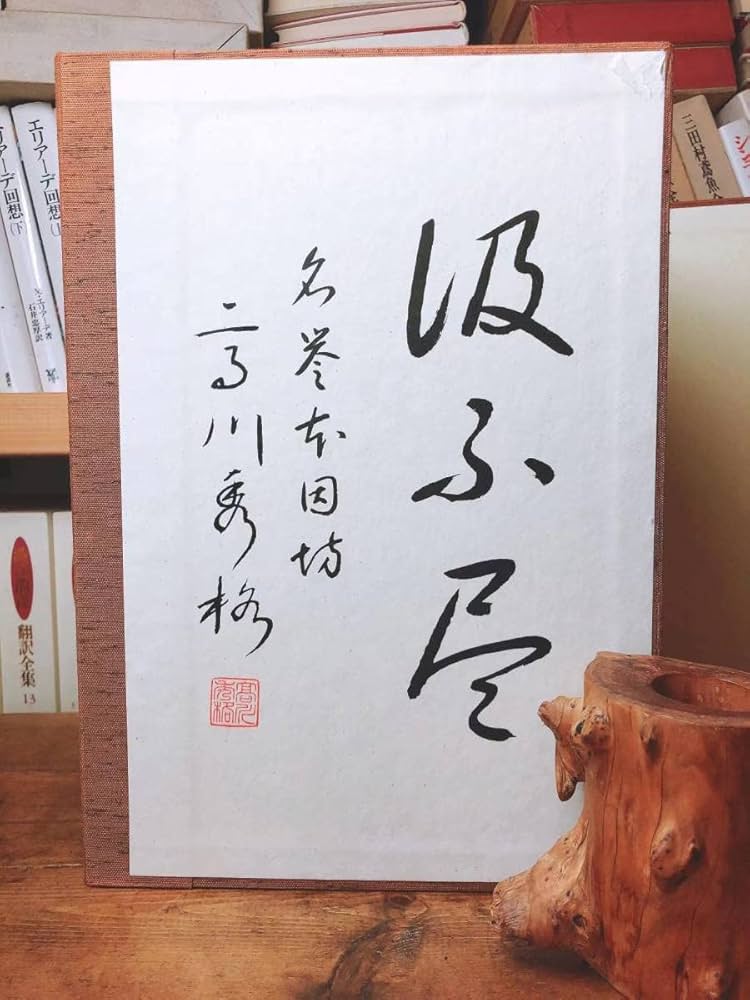 汲不尽
名誉本因坊
高川秀格
高川
秀格
エリアーデ回想(下
エリアーデ回想(上
M・エリアーデ著
石井忠厚訳
三田村鳶魚全
翻訳全集
13